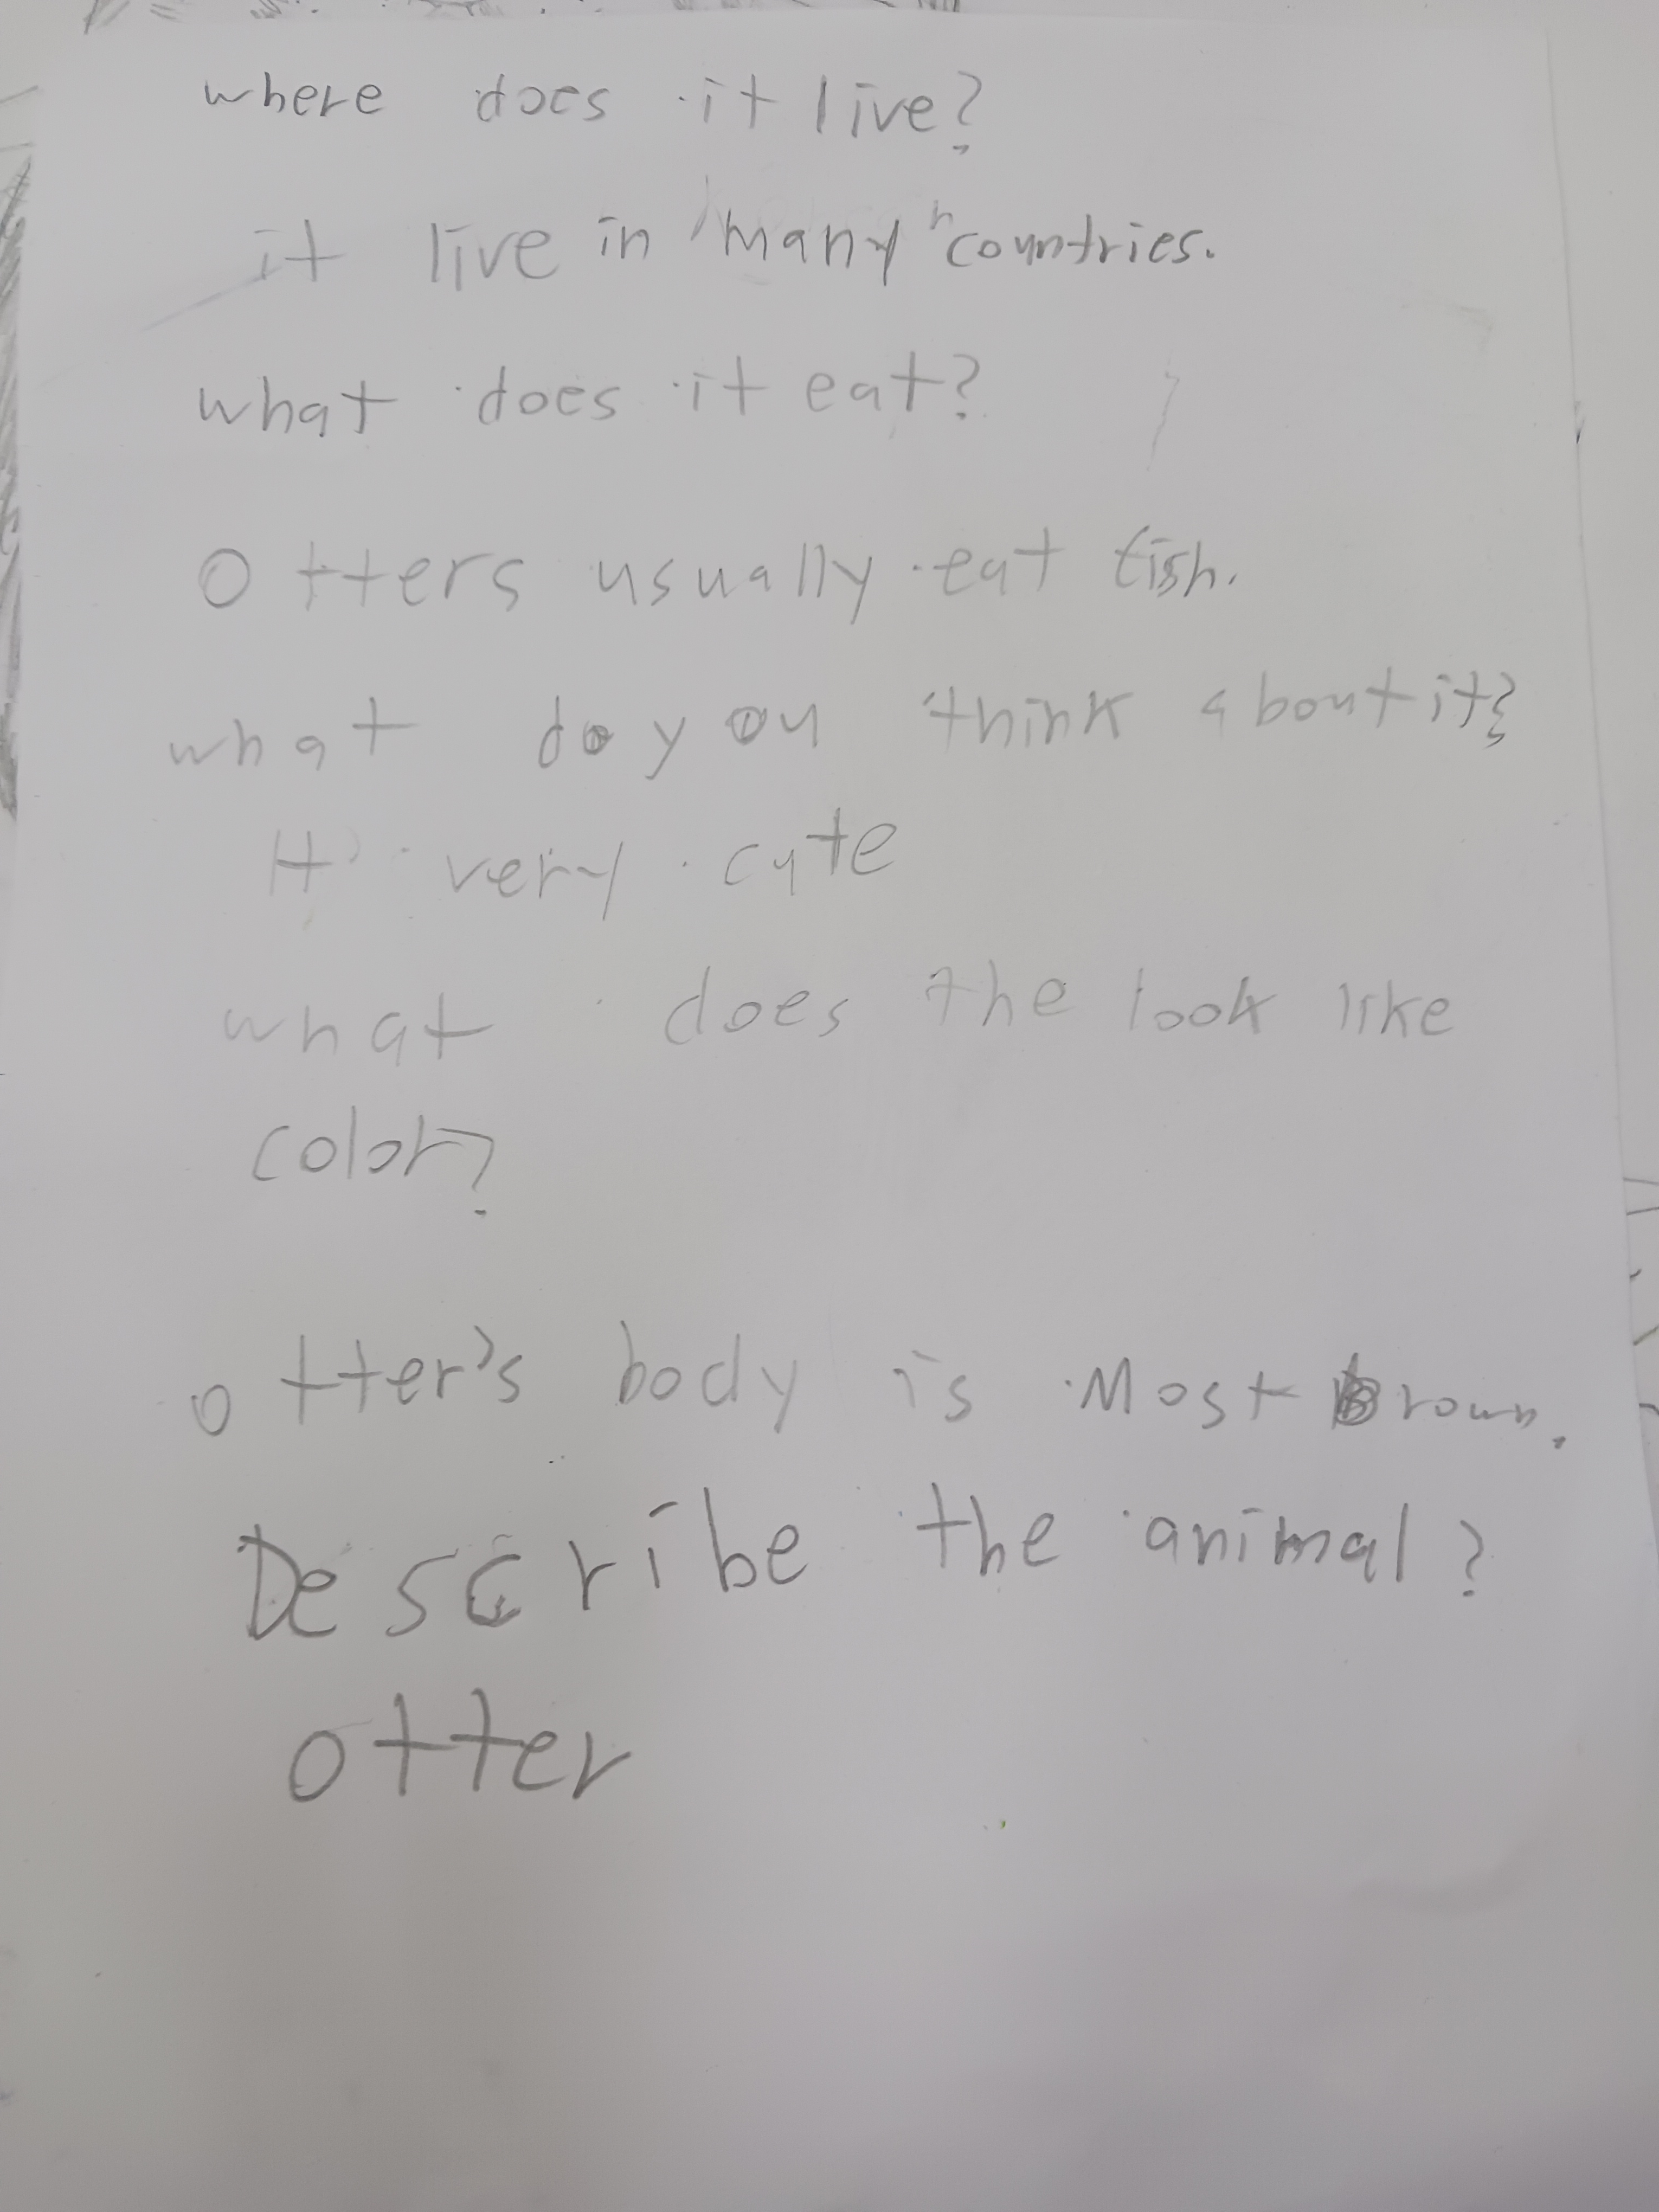 where does it live?
it live in many countries.
what does it eat?
Otters usually eat fish.
what do you think about it?
It very cute
what does the look like
color?
otter's body is Most Brown.
Describe the animal?
otter